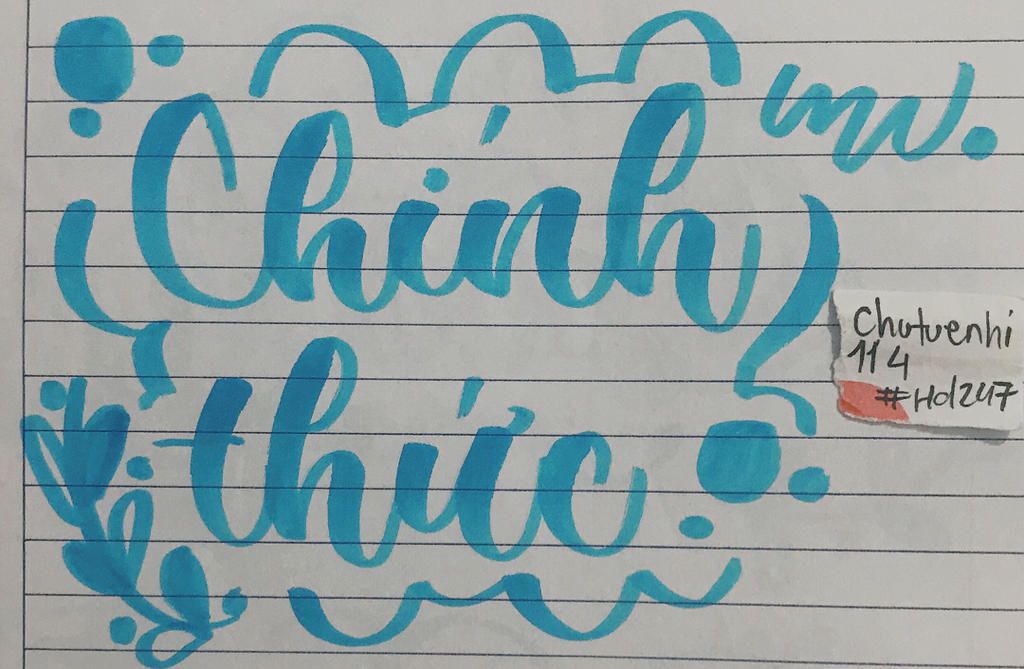 Chính
thức
mv.
Chutuenhi
114
#Hd247